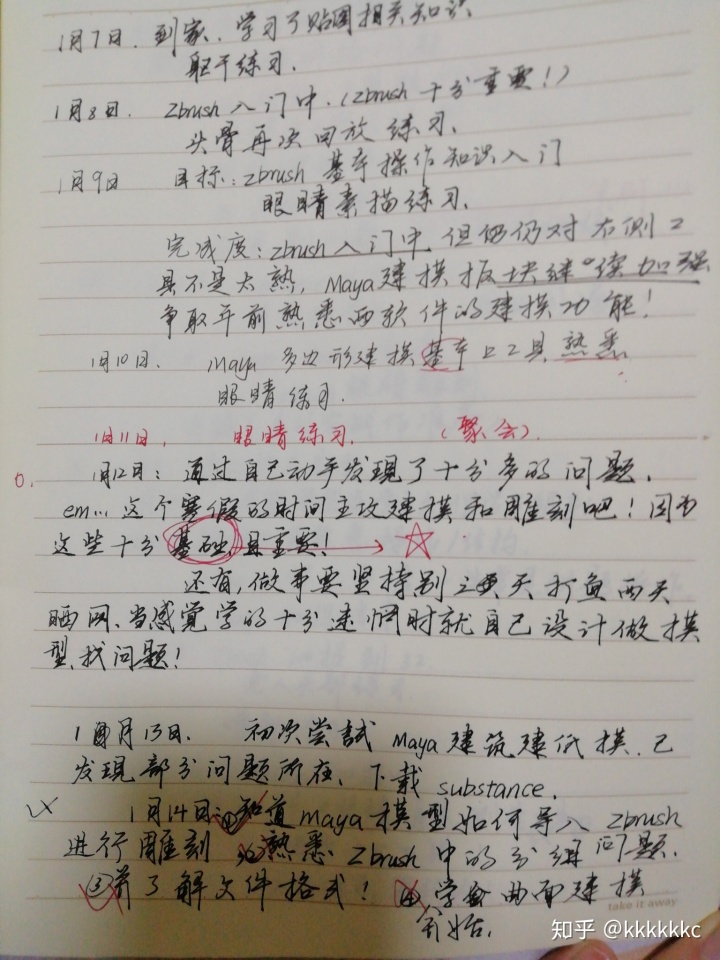 1月7日. 到家. 学习了贴图相关知识
躯干练习.
1月8日. Zbrush 入门中.(Zbrush 十分重要!)
头骨再次回放练习.
1月9日 目标:Zbrush 基本操作知识入门
眼睛素描练习.
完成度:Zbrush入门中 但仍对右侧工
具不是太熟, Maya建模板块继续加强
争取年前熟悉两软件的建模功能!
1月10日. Maya 多边形建模基本工具熟悉.
眼睛练习.
1月11日, 眼睛练习. (聚会).
1月12日:通过自己动手发现了十分多的问题.
em... 这个寒假的时间主攻建模和雕刻吧!因为
这些十分基础且重要!
还有,做事要坚持别三天打鱼两天
晒网、当感觉学的十分迷惘时就自己设计做模
型,找问题!
1月13日. 初次尝試 Maya 建筑建低模.已
发现部分问题所在、下载 substance.
1月14日:①知道Maya模型如何导入 Zbrush
进行雕刻 ②熟悉Zbrush中的分组问题.
③了解文件格式! ④学会曲面建模
开始.
take it away
知乎 @kkkkkkc